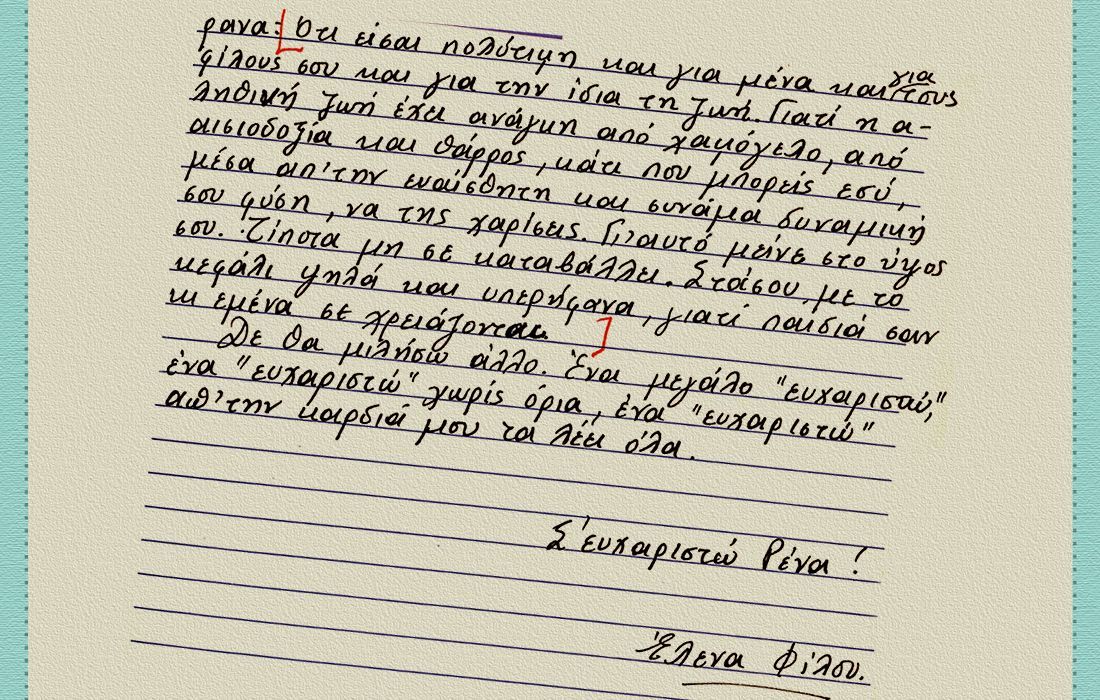 ρανα: Ότι είσαι πολύτιμη και για μένα και για τους
φίλους σου και για την ίδια τη ζωή. Γιατί η α-
ληθινή ζωή έχει ανάγκη από χαμόγελο, από
αισιοδοξία και θάρρος, κάτι που μπορείς εσύ,
μέσα απ' την ευαίσθητη και συνάμα δυναμική
σου φύση, να της χαρίσεις. Γι' αυτό μείνε στο ύψος
σου. Τίποτα μη σε καταβάλλει. Στάσου, με το
κεφάλι ψηλά και υπερήφανα, γιατί παιδιά σαν
κι εμένα σε χρειάζονται.
Δε θα μιλήσω άλλο. Ένα μεγάλο "ευχαριστώ,"
ένα "ευχαριστώ" χωρίς όρια, ένα "ευχαριστώ"
απ' την καρδιά μου τα λέει όλα.
Σ' ευχαριστώ Ρένα!
Έλενα Φίλου.